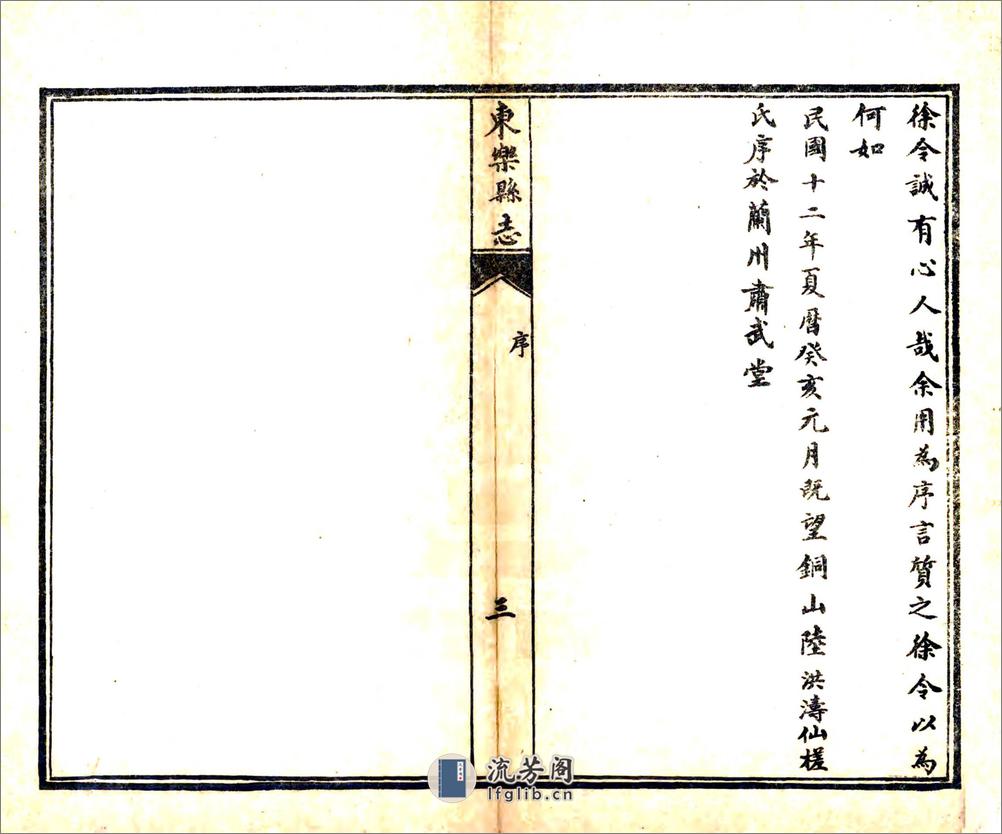 徐令誠有心人哉余用為序言質之徐令以為
何如
民國十二年夏曆癸亥元月既望銅山陸洪濤仙槎
氏序於蘭州肅武堂
東樂縣志
序
三
流芳阁
lfglib.cn